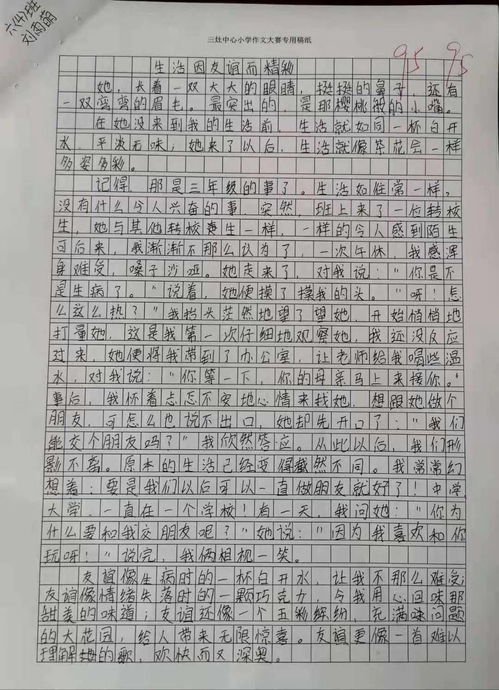 六(4)班
刘雨萌
三灶中心小学作文大赛专用稿纸
95 95
生活因友谊而精彩
她,长着一双大大的眼睛,挺挺的鼻子,还有
一双弯弯的眉毛。最突出的,是那樱桃般的小嘴。
在她没来到我的生活前,生活就如同一杯白开
水,平淡无味;她来了以后,生活就像万花会一样
多姿多彩。
记得,那是三年级的事了。生活如往常一样,
没有什么令人兴奋的事,突然,班上来了一位转校
生,她与其他转校寮生一样,一样的令人感到陌生
可后来,我渐渐不那么认为了,一次午休,我感浑
身难受,嗓子沙哑。她走来了,对我说:"你是不
是生病了。"说着,她便摸了摸我的头。"呀!怎
么这么热?"我抬头茫然地望了望她,开始悄悄地
打量她,这是我第一次仔细地观察她,我还没反应
过来,她便将我带到了办公室,让老师给我喝些温
水,对我说:"你等一下,你的母亲马上来接你。"
事后,我怀着忐忑不安地心情来找她,想跟她做个
朋友,可怎么也说不出口,她却先开口了:"我们
能交个朋友吗?"我欣然答应。从此以后,我们形
影不离。原本的生活已经变得截然不同。我常常幻
想着:要是我们以后可以一直做朋友就好了!中学,
大学,一直在一个学校!有一天,我问她:"你为
什么要和我交朋友呢?"她说:"因为我喜欢和你
玩呀!"说完,我俩相视一笑。
友谊像生病时的一杯白开水,让我不那么难受;
友谊像情绪失落时的一颗巧克力,令我用心回味那
甜美的味道;友谊还像一个五彩缤纷,充满味问题
的大花园,给人带来无限惊喜。友谊更像一首难以
理解她的歌,欢快而又深奥。